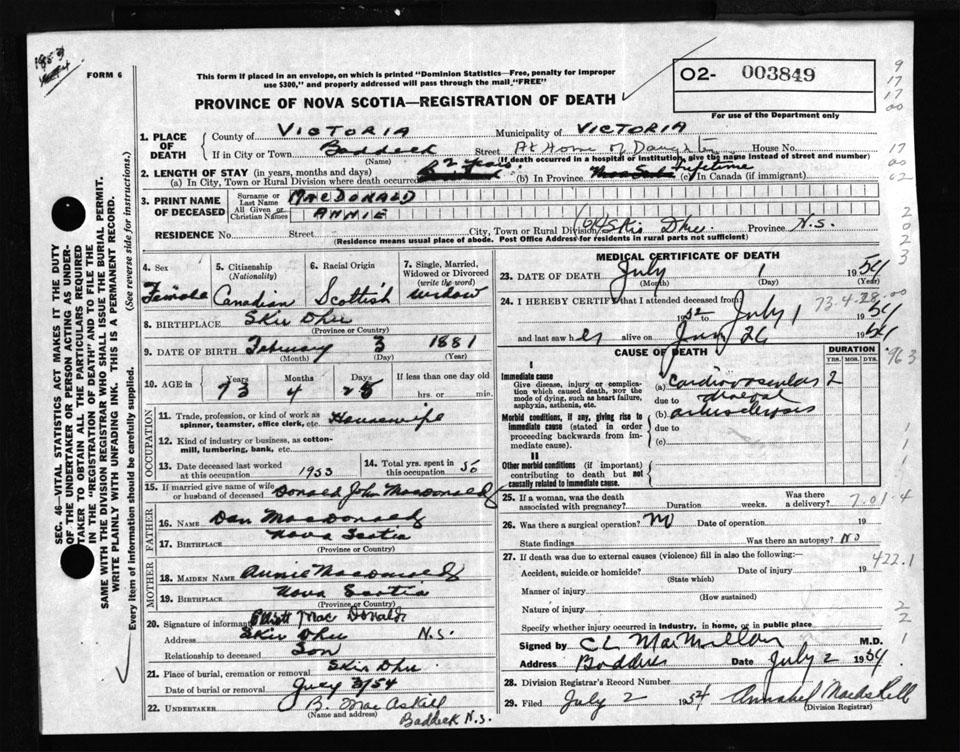 1853
FORM 6
This form if placed in an envelope, on which is printed "Dominion Statistics—Free, penalty for improper
use $300," and properly addressed will pass through the mail "FREE"
PROVINCE OF NOVA SCOTIA—REGISTRATION OF DEATH
O2- 003849
For use of the Department only
SEC. 46—VITAL STATISTICS ACT MAKES IT THE DUTY
OF THE UNDERTAKER OR PERSON ACTING AS UNDER-
TAKER TO OBTAIN ALL THE PARTICULARS REQUIRED
IN THE "REGISTRATION OF DEATH" AND TO FILE THE
SAME WITH THE DIVISION REGISTRAR WHO SHALL ISSUE THE BURIAL PERMIT.
WRITE PLAINLY WITH UNFADING INK. THIS IS A PERMANENT RECORD.
Every item of information should be carefully supplied. (See reverse side for instructions.)
1. PLACE OF DEATH
County of VICTORIA Municipality of VICTORIA
If in City or Town Baddeck Street At Home of Daughter House No.
(Name) (If death occurred in a hospital or institution, give the name instead of street and number)
2. LENGTH OF STAY (in years, months and days)
(a) In City, Town or Rural Division where death occurred 2 years (b) In Province Lifetime (c) In Canada (if immigrant)
3. PRINT NAME OF DECEASED
Surname or Last Name MACDONALD
All Given or Christian Names ANNIE
RESIDENCE House No. Street City, Town or Rural Division Skir Dhu Province N.S.
(Residence means usual place of abode. Post Office Address for residents in rural parts not sufficient)
4. Sex Female
5. Citizenship (Nationality) Canadian
6. Racial Origin Scottish
7. Single, Married, Widowed or Divorced (write the word) Widow
8. BIRTHPLACE Skir Dhu
(Province or Country)
9. DATE OF BIRTH February 3 1881
(Month) (Day) (Year)
10. AGE in Years Months Days If less than one day old
73 4 28 hrs. or min.
OCCUPATION
11. Trade, profession, or kind of work as
spinner, teamster, office clerk, etc. Housewife
12. Kind of industry or business, as cotton-
mill, lumbering, bank, etc.
13. Date deceased last worked
at this occupation 1953
14. Total yrs. spent in
this occupation 50
15. If married give name of wife
or husband of deceased Donald John MacDonald
FATHER
16. NAME Dan MacDonald
17. BIRTHPLACE Nova Scotia
(Province or Country)
MOTHER
18. MAIDEN NAME Annie Macdonald
19. BIRTHPLACE Nova Scotia
(Province or Country)
20. Signature of informant Elliott MacDonald
Address Skir Dhu N.S.
Relationship to deceased Son
21. Place of burial, cremation or removal Skir Dhu
Date of burial or removal July 3/54
22. UNDERTAKER B. MacAskill
(Name and address) Baddeck N.S.
MEDICAL CERTIFICATE OF DEATH
23. DATE OF DEATH July 1 1954
(Month) (Day) (Year)
24. I HEREBY CERTIFY that I attended deceased from
1952 to July 1 1954
and last saw her alive on June 26 1954
73.4.28.00
CAUSE OF DEATH
DURATION
YRS. MOS. DYS.
I
Immediate cause
Give disease, injury or complica-
tion which caused death, NOT the
mode of dying, such as heart failure,
asphyxia, asthenia, etc.
(a) Cardiovascular 2
due to disease
Morbid conditions, if any, giving rise to
immediate cause (stated in order
proceeding backwards from im-
mediate cause).
(b) arteriosclerosis
due to
(c)
II
Other morbid conditions (if important)
contributing to death but not
causally related to immediate cause.
25. If a woman, was the death
associated with pregnancy? Duration weeks. Was there a delivery? 7.01.4
26. Was there a surgical operation? No Date of operation 19
State findings Was there an autopsy? No
27. If death was due to external causes (violence) fill in also the following:—
Accident, suicide or homicide? Date of injury 19
(State which)
422.1
Manner of injury
(How sustained)
Nature of injury
Specify whether injury occurred in Industry, in home, or in public place
Signed by C L MacMillan M.D.
Address Baddeck Date July 2 1954
28. Division Registrar's Record Number
29. Filed July 2 1954 Annabel MacAskill
(Division Registrar)
9
17
17
00
17
00
02
2
0
2
3
963
1
1
1
2
2
1
3